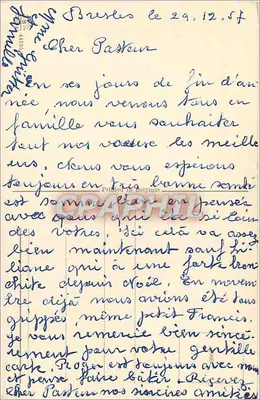 Bresles le 29.12.57
Cher Pasteur
En ses jours de fin d'an-
née, nous venons tous en
famille vous souhaiter
tout nos vœuse les meille
urs, chers vous espérons
toujours en très bonne santé
est somme bien en pensée
avec vous si loin
des votres. Ici cela va assez
bien maintenant sauf Li-
liane qui à une forte bron
chite depuis Noël. En novem
bre déjà nous avions été tous
grippés, même petit Francis.
Je vous remercie bien sincè-
rement pour votre gentille
carte. Roger est toujours avec nous
et pense faire Recevez
cher Pasteur nos sincères amitiés
Mme
Famille